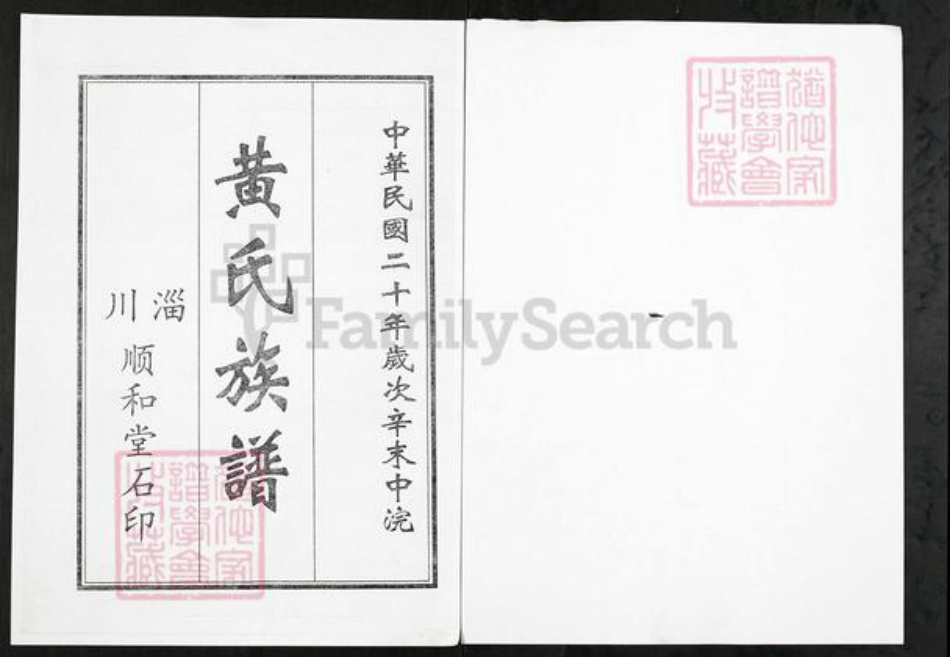 中華民國二十年歲次辛末中浣
黃氏族譜
淄川
顺和堂石印
FamilySearch
猶他家
譜學會
收藏
猶他家
譜學會
收藏